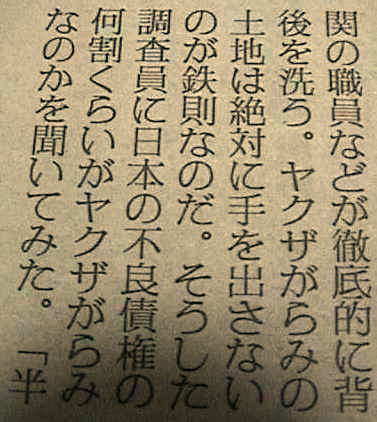 関の職員などが徹底的に背
後を洗う。ヤクザがらみの
土地は絶対に手を出さない
のが鉄則なのだ。そうした
調査員に日本の不良債権の
何割くらいがヤクザがらみ
なのかを聞いてみた。「半